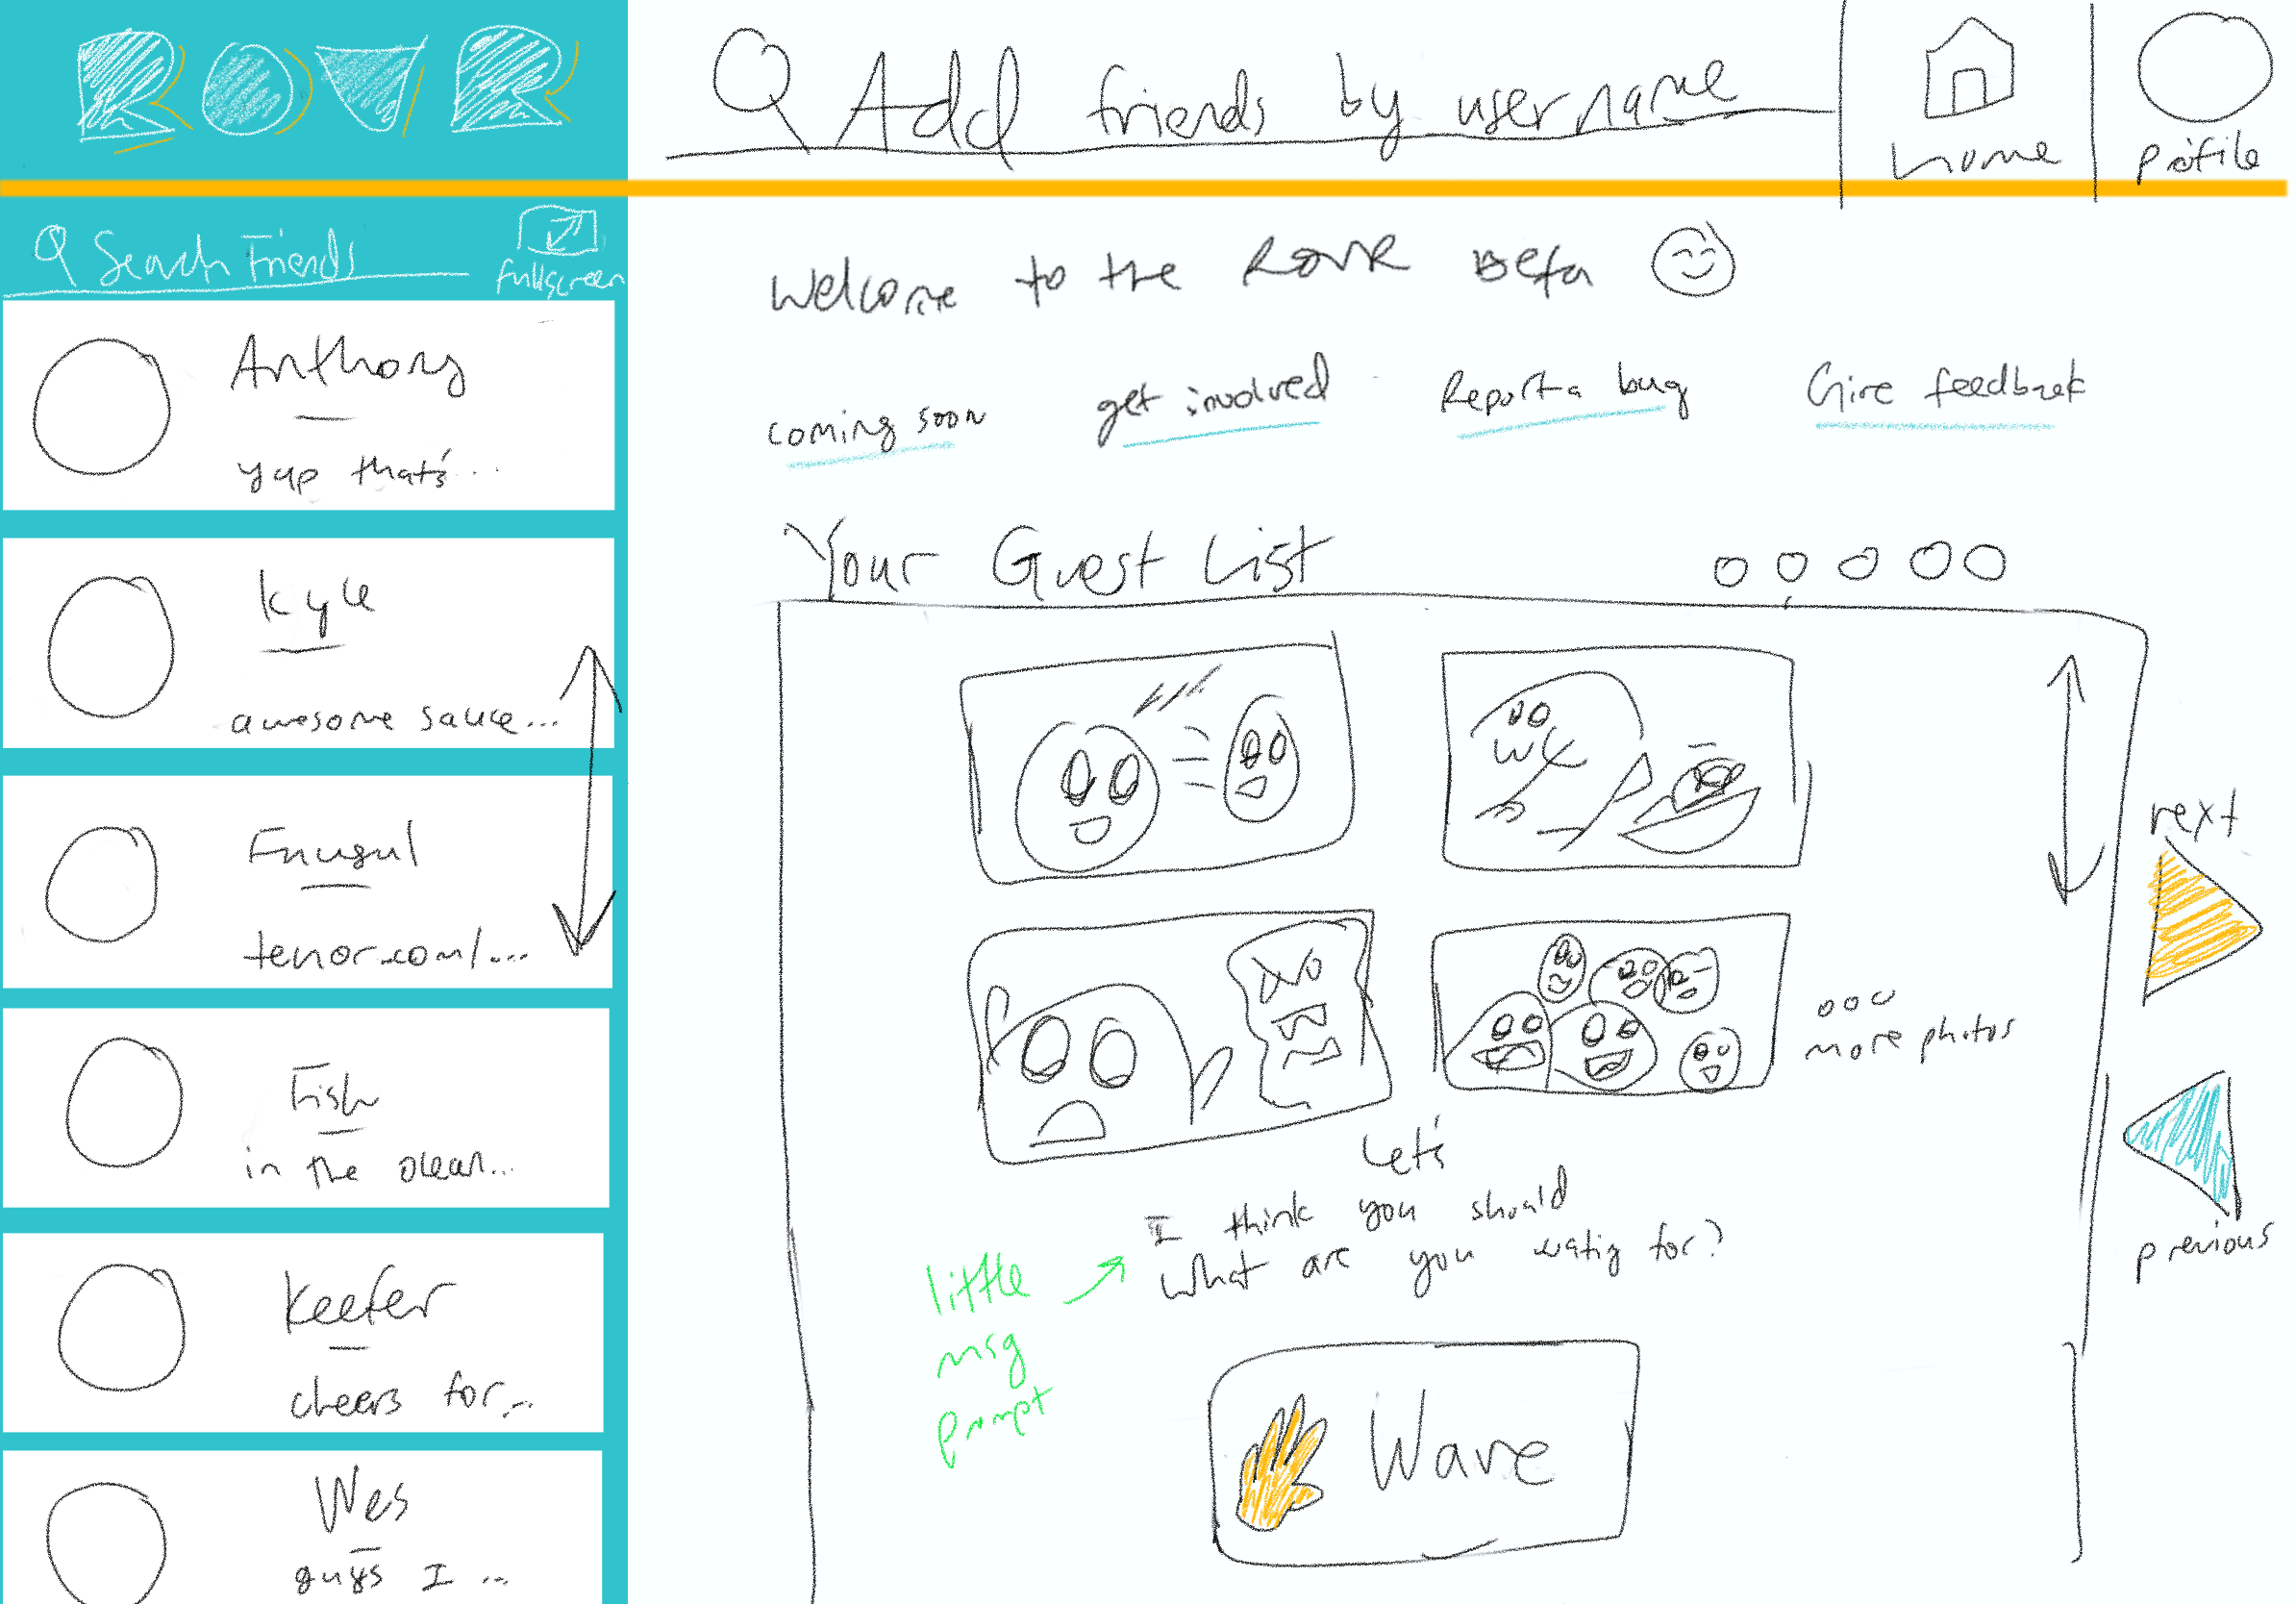 ROVR
Add friends by username
home
profile
Search Friends
fullscreen
Anthony
yap that's...
Kyle
awesome sauce...
Frugul
tenor.com/...
Fish
in the ocean...
Keefer
cheers for...
Wes
guys I ...
Welcome to the ROVR Beta
coming soon
get involved
Report a bug
Give feedback
Your Guest List
NO
ooo
more photos
next
previous
Let's
I think you should
what are you wating for?
little
msg
prompt
Wave